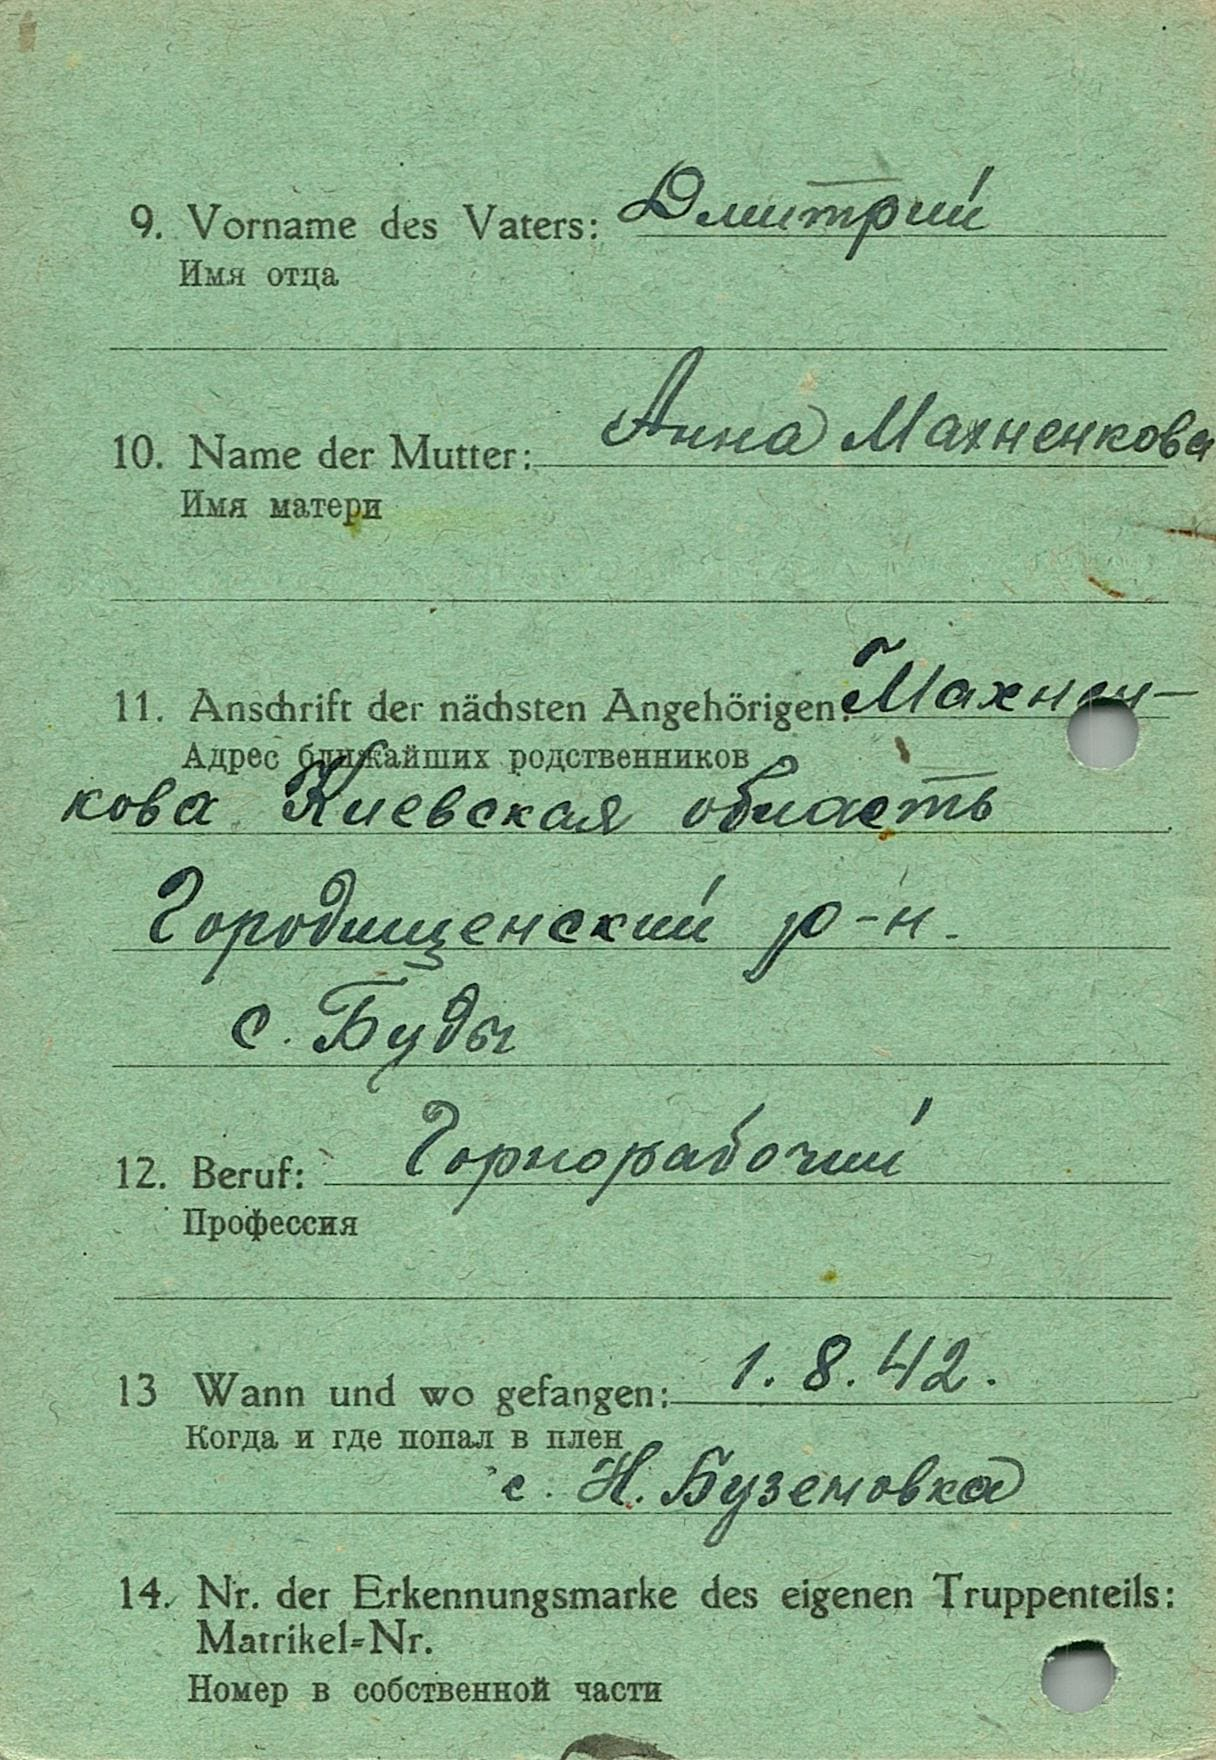 9. Vorname des Vaters: Дмитрий
Имя отца
10. Name der Mutter: Анна Махненкова
Имя матери
11. Anschrift der nächsten Angehörigen: Махнен-
Адрес ближайших родственников
кова Киевская область
Городищенский р-н.
с. Буды
12. Beruf: Горнорабочий
Профессия
13 Wann und wo gefangen: 1.8.42.
Когда и где попал в плен
с. Н. Буземовка
14. Nr. der Erkennungsmarke des eigenen Truppenteils:
Matrikel=Nr.
Номер в собственной части